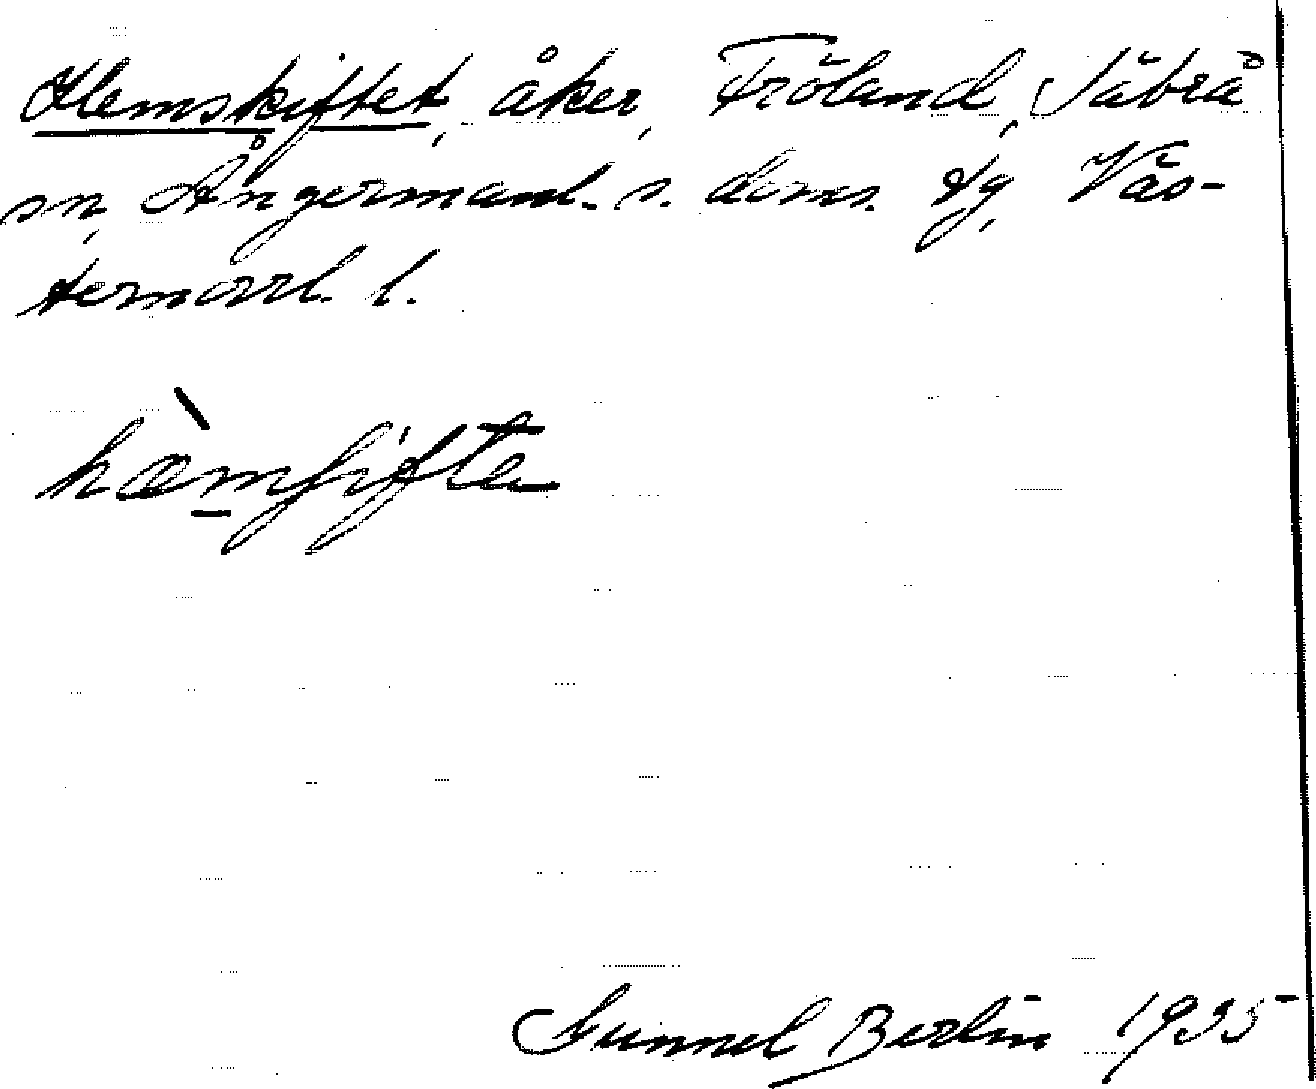 Hemskiftet, åker, Fröland, Säbrå
sn, Ångermanl. s. doms. tg, Väs-
ternorrl. l.
hæ̀mʃifte
Gunnel Berlin 1935